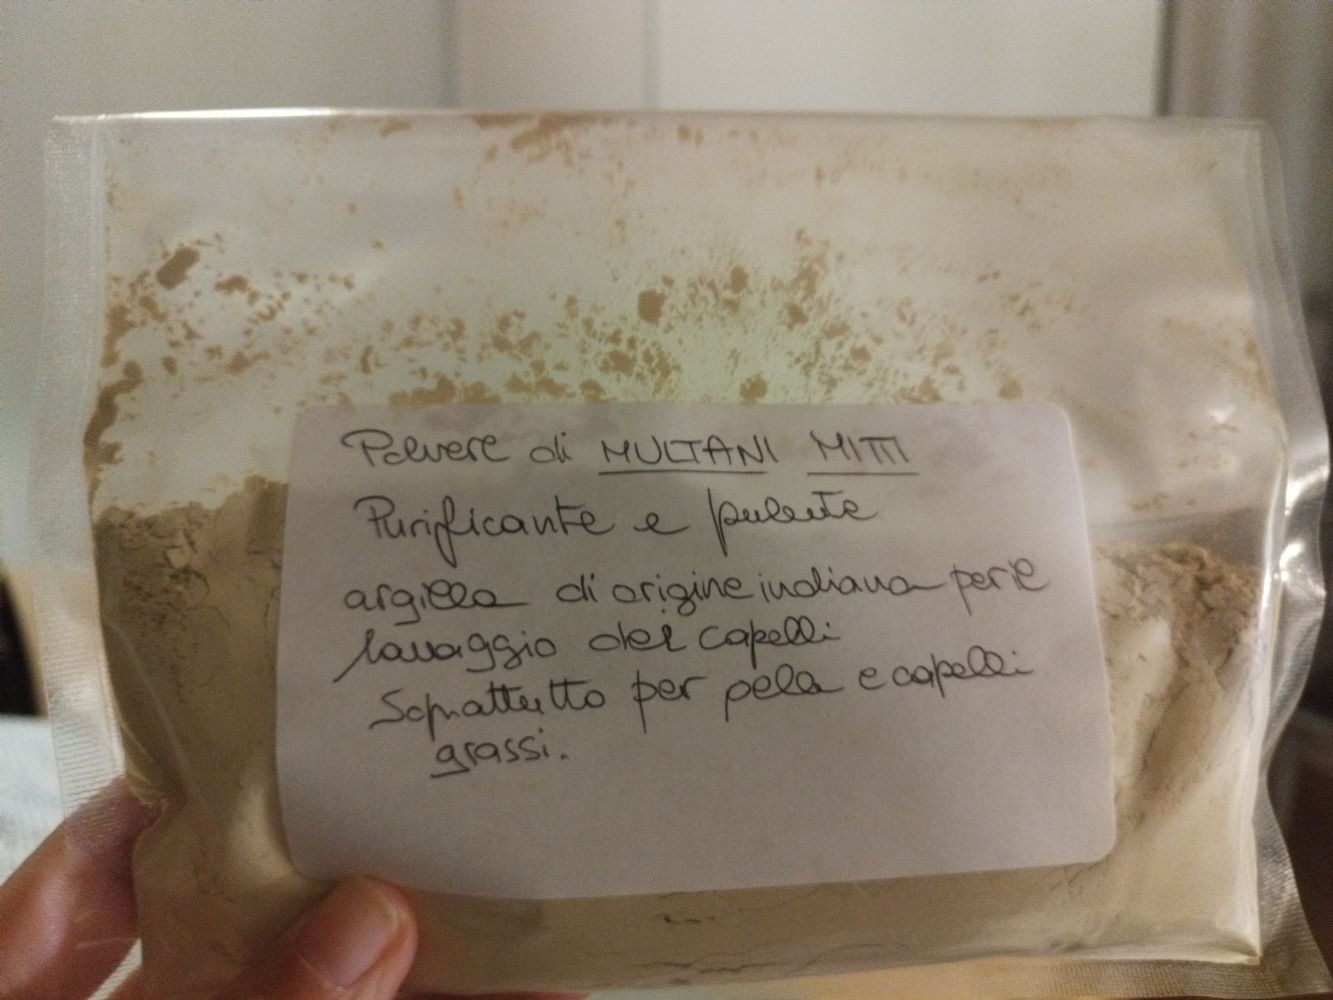 Polvere di MULTANI MITTI
Purificante e pulente
argilla di origine indiana per il
lavaggio dei capelli
Soprattutto per pelle e capelli
grassi.